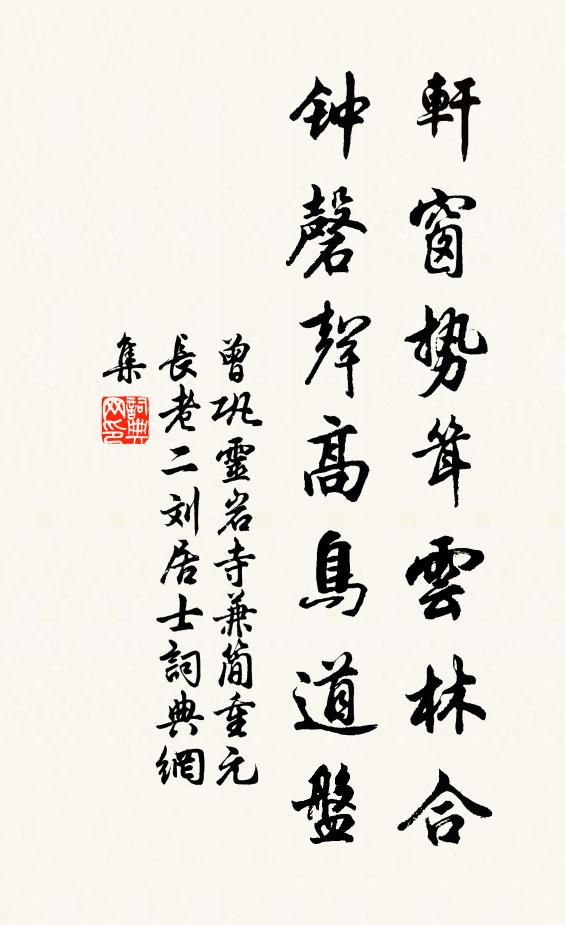 軒窗势聳雲林合
钟磬聲高鳥道盤
曾巩靈岩寺兼简重元
長老二刘居士詞典網
集
詞典
网印